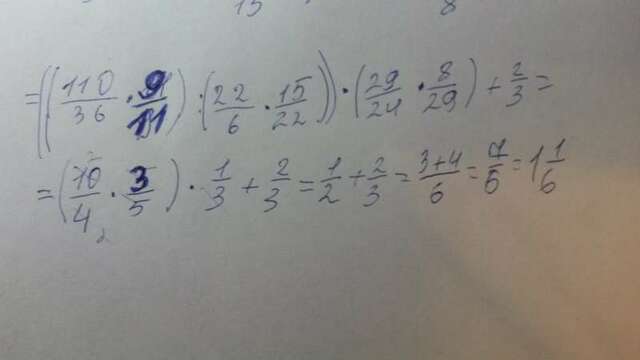 15 8
=((110/36 · 9/11) · (22/6 · 15/22)) · (29/24 · 8/29) + 2/3 =
= (10/4 · 3/5) · 1/3 + 2/3 = 1/2 + 2/3 = 3+4/6 = 7/6 = 1 1/6